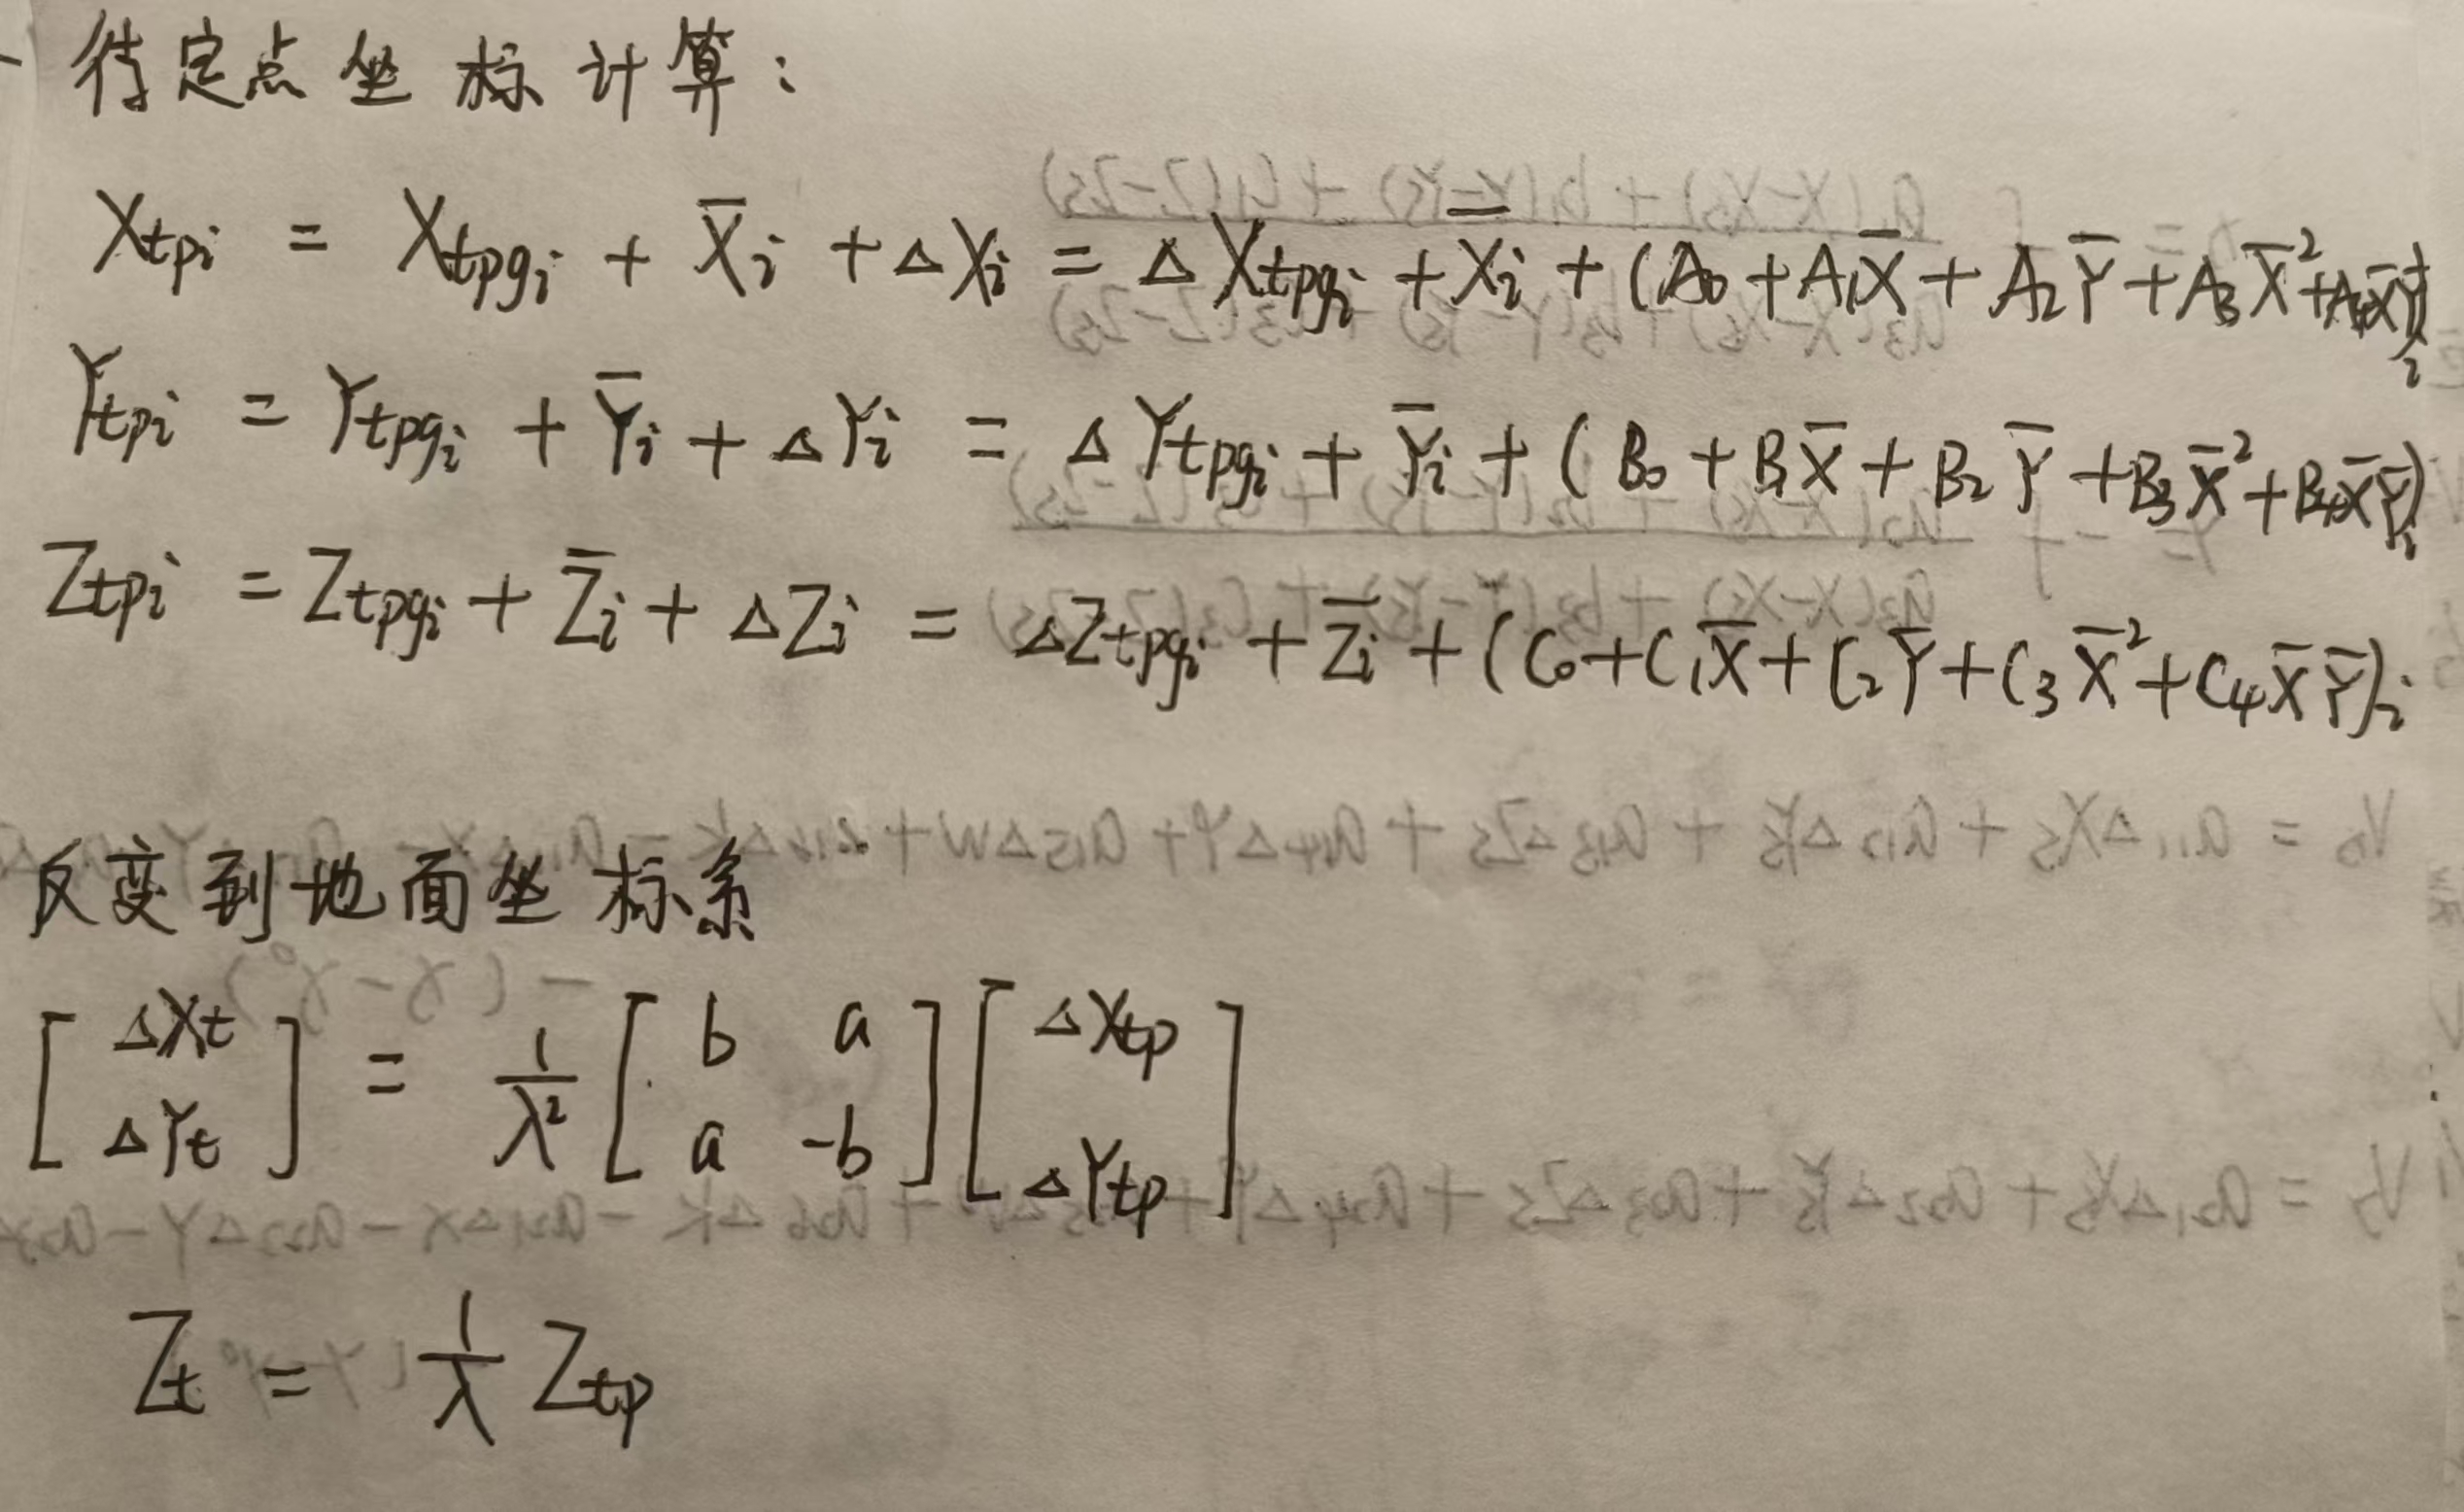 待定点坐标计算:
Xtpi = Xtpgi + X̄i + ΔXi = ΔXtpgi + X̄i + (A₀ + A₁X̄ + A₂Ȳ + A₃X̄² + A₄X̄Ȳ)i
Ytpi = Ytpgi + Ȳi + ΔYi = ΔYtpgi + Ȳi + (B₀ + B₁X̄ + B₂Ȳ + B₃X̄² + B₄X̄Ȳ)i
Ztpi = Ztpgi + Z̄i + ΔZi = ΔZtpgi + Z̄i + (C₀ + C₁X̄ + C₂Ȳ + C₃X̄² + C₄X̄Ȳ)i
反变到地面坐标系
[ΔXt; ΔYt] = 1/λ² [b a; a -b] [ΔXtp; ΔYtp]
Zt = 1/λ Ztp